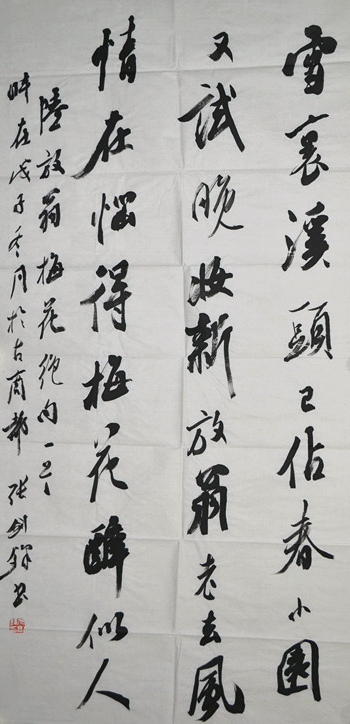 雪裏溪頭已佔春小園
又試晚妝新放翁老去風
情在惱得梅花醉似人
陸放翁梅花絕句一首
時在戊子冬月於古商都 張剑书